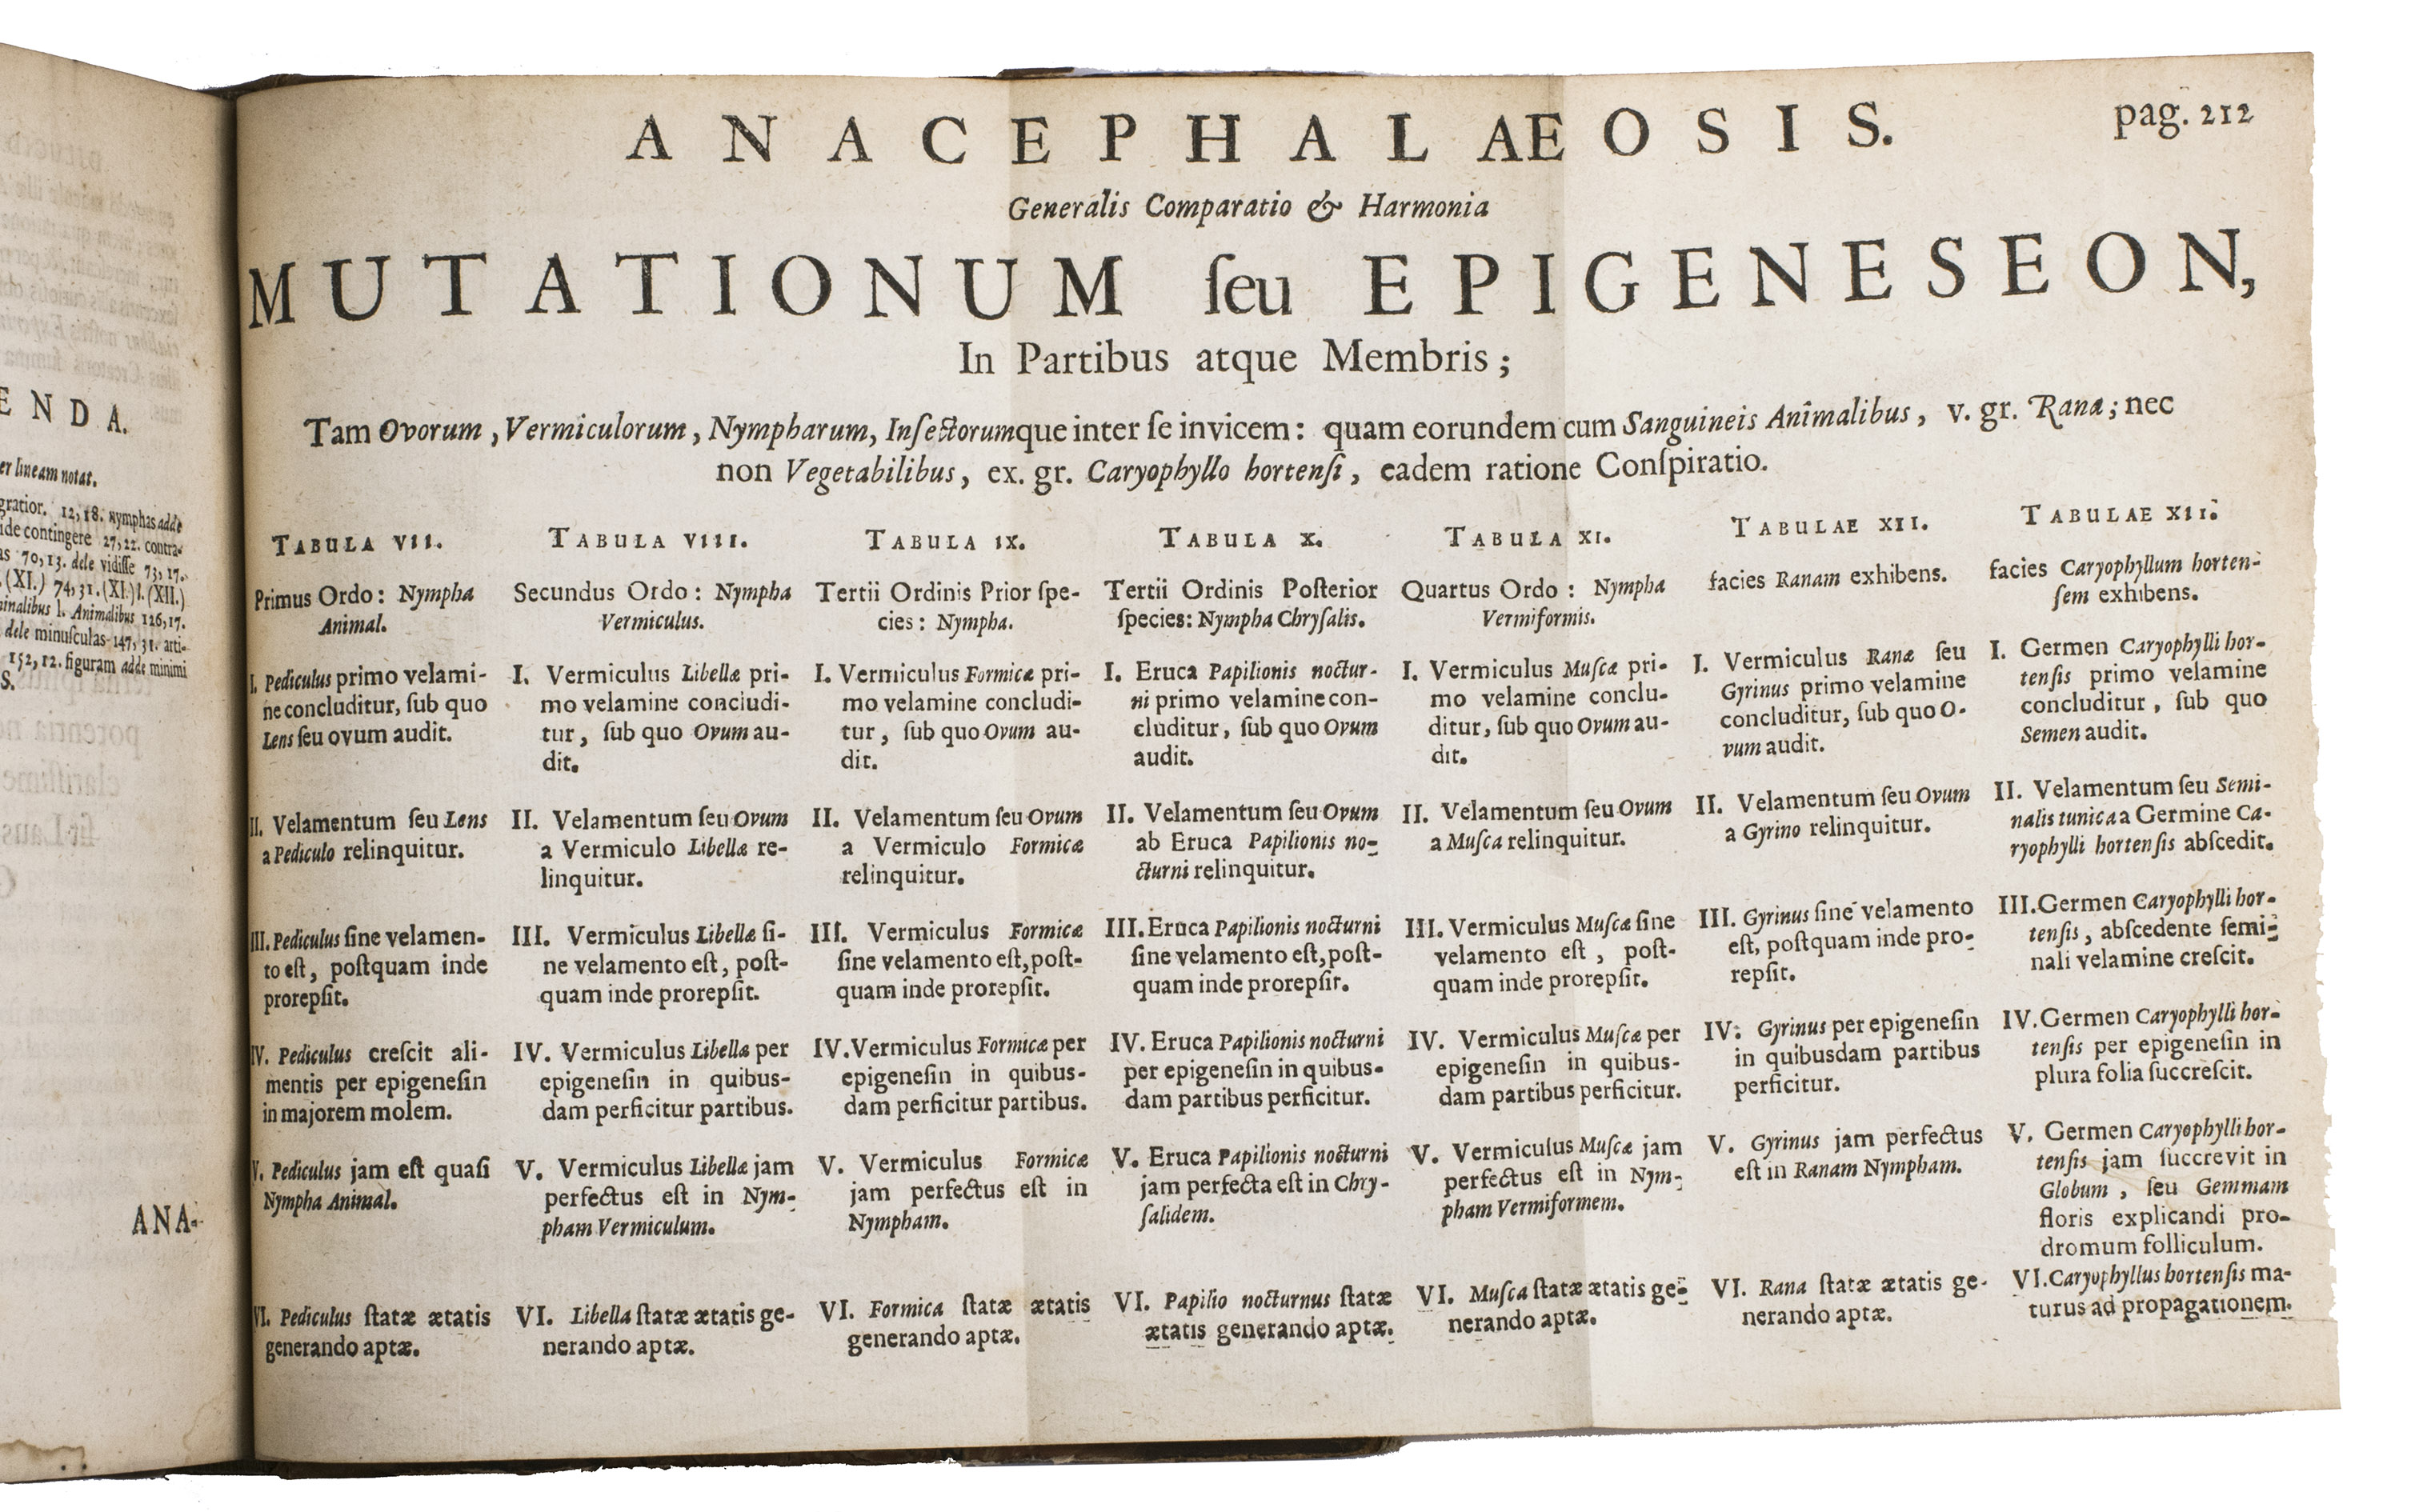 E N D A.
er lineam notat.
gratior. 12, 18. Nymphas adde
ide contingere 27, 22. contra-
as 70, 13. dele vidiſſe 73, 17.
(XI.) 74, 31. (XI.) l. (XII.)
l. Animalibus 126, 17.
dele minuſculas 147, 31. arti-
152, 12. figuram adde minimi
S.
ANA-
ANACEPHALÆOSIS.
pag. 212
Generalis Comparatio & Harmonia
MUTATIONUM ſeu EPIGENESEON,
In Partibus atque Membris;
Tam Ovorum, Vermiculorum, Nympharum, Inſectorumque inter ſe invicem: quam eorundem cum Sanguineis Animalibus, v. gr. Rana; nec
non Vegetabilibus, ex. gr. Caryophyllo hortenſi, eadem ratione Conſpiratio.
TABULA VII.
Primus Ordo: Nympha
Animal.
I. Pediculus primo velami-
ne concluditur, ſub quo
Lens ſeu ovum audit.
II. Velamentum ſeu Lens
a Pediculo relinquitur.
III. Pediculus ſine velamen-
to eſt, poſtquam inde
prorepſit.
IV. Pediculus creſcit ali-
mentis per epigeneſin
in majorem molem.
V. Pediculus jam eſt quaſi
Nympha Animal.
VI. Pediculus ſtatæ ætatis
generando aptæ.
TABULA VIII.
Secundus Ordo: Nympha
Vermiculus.
I. Vermiculus Libellæ pri-
mo velamine concludi-
tur, ſub quo Ovum au-
dit.
II. Velamentum ſeu Ovum
a Vermiculo Libellæ re-
linquitur.
III. Vermiculus Libellæ ſi-
ne velamento eſt, poſt-
quam inde prorepſit.
IV. Vermiculus Libellæ per
epigeneſin in quibus-
dam perficitur partibus.
V. Vermiculus Libellæ jam
perfectus eſt in Nym-
pham Vermiculum.
VI. Libella ſtatæ ætatis ge-
nerando aptæ.
TABULA IX.
Tertii Ordinis Prior ſpe-
cies: Nympha.
I. Vermiculus Formicæ pri-
mo velamine concludi-
tur, ſub quo Ovum au-
dit.
II. Velamentum ſeu Ovum
a Vermiculo Formicæ
relinquitur.
III. Vermiculus Formicæ
ſine velamento eſt, poſt-
quam inde prorepſit.
IV. Vermiculus Formicæ per
epigeneſin in quibus-
dam perficitur partibus.
V. Vermiculus Formicæ
jam perfectus eſt in
Nympham.
VI. Formica ſtatæ ætatis
generando aptæ.
TABULA X.
Tertii Ordinis Poſterior
ſpecies: Nympha Chryſalis.
I. Eruca Papilionis noctur-
ni primo velamine con-
cluditur, ſub quo Ovum
audit.
II. Velamentum ſeu Ovum
ab Eruca Papilionis no-
cturni relinquitur.
III. Eruca Papilionis nocturni
ſine velamento eſt, poſt-
quam inde prorepſit.
IV. Eruca Papilionis nocturni
per epigeneſin in quibus-
dam partibus perficitur.
V. Eruca Papilionis nocturni
jam perfecta eſt in Chry-
ſalidem.
VI. Papilio nocturnus ſtatæ
ætatis generando aptæ.
TABULA XI.
Quartus Ordo: Nympha
Vermiformis.
I. Vermiculus Muſcæ pri-
mo velamine conclu-
ditur, ſub quo Ovum au-
dit.
II. Velamentum ſeu Ovum
a Muſca relinquitur.
III. Vermiculus Muſcæ ſine
velamento eſt, poſt-
quam inde prorepſit.
IV. Vermiculus Muſcæ per
epigeneſin in quibus-
dam partibus perficitur.
V. Vermiculus Muſcæ jam
perfectus eſt in Nym-
pham Vermiformem.
VI. Muſca ſtatæ ætatis ge-
nerando aptæ.
TABULAE XII.
facies Ranam exhibens.
I. Vermiculus Ranæ ſeu
Gyrinus primo velamine
concluditur, ſub quo O-
vum audit.
II. Velamentum ſeu Ovum
a Gyrino relinquitur.
III. Gyrinus ſine velamento
eſt, poſtquam inde pro-
repſit.
IV. Gyrinus per epigeneſin
in quibusdam partibus
perficitur.
V. Gyrinus jam perfectus
eſt in Ranam Nympham.
VI. Rana ſtatæ ætatis ge-
nerando aptæ.
TABULAE XII.
facies Caryophyllum horten-
ſem exhibens.
I. Germen Caryophylli hor-
tenſis primo velamine
concluditur, ſub quo
Semen audit.
II. Velamentum ſeu Semi-
nalis tunica a Germine Ca-
ryophylli hortenſis abſcedit.
III. Germen Caryophylli hor-
tenſis, abſcedente ſemi-
nali velamine creſcit.
IV. Germen Caryophylli hor-
tenſis per epigeneſin in
plura folia ſuccreſcit.
V. Germen Caryophylli hor-
tenſis jam ſuccrevit in
Globum, ſeu Gemmam
floris explicandi pro-
dromum folliculum.
VI. Caryophyllus hortenſis ma-
turus ad propagationem.